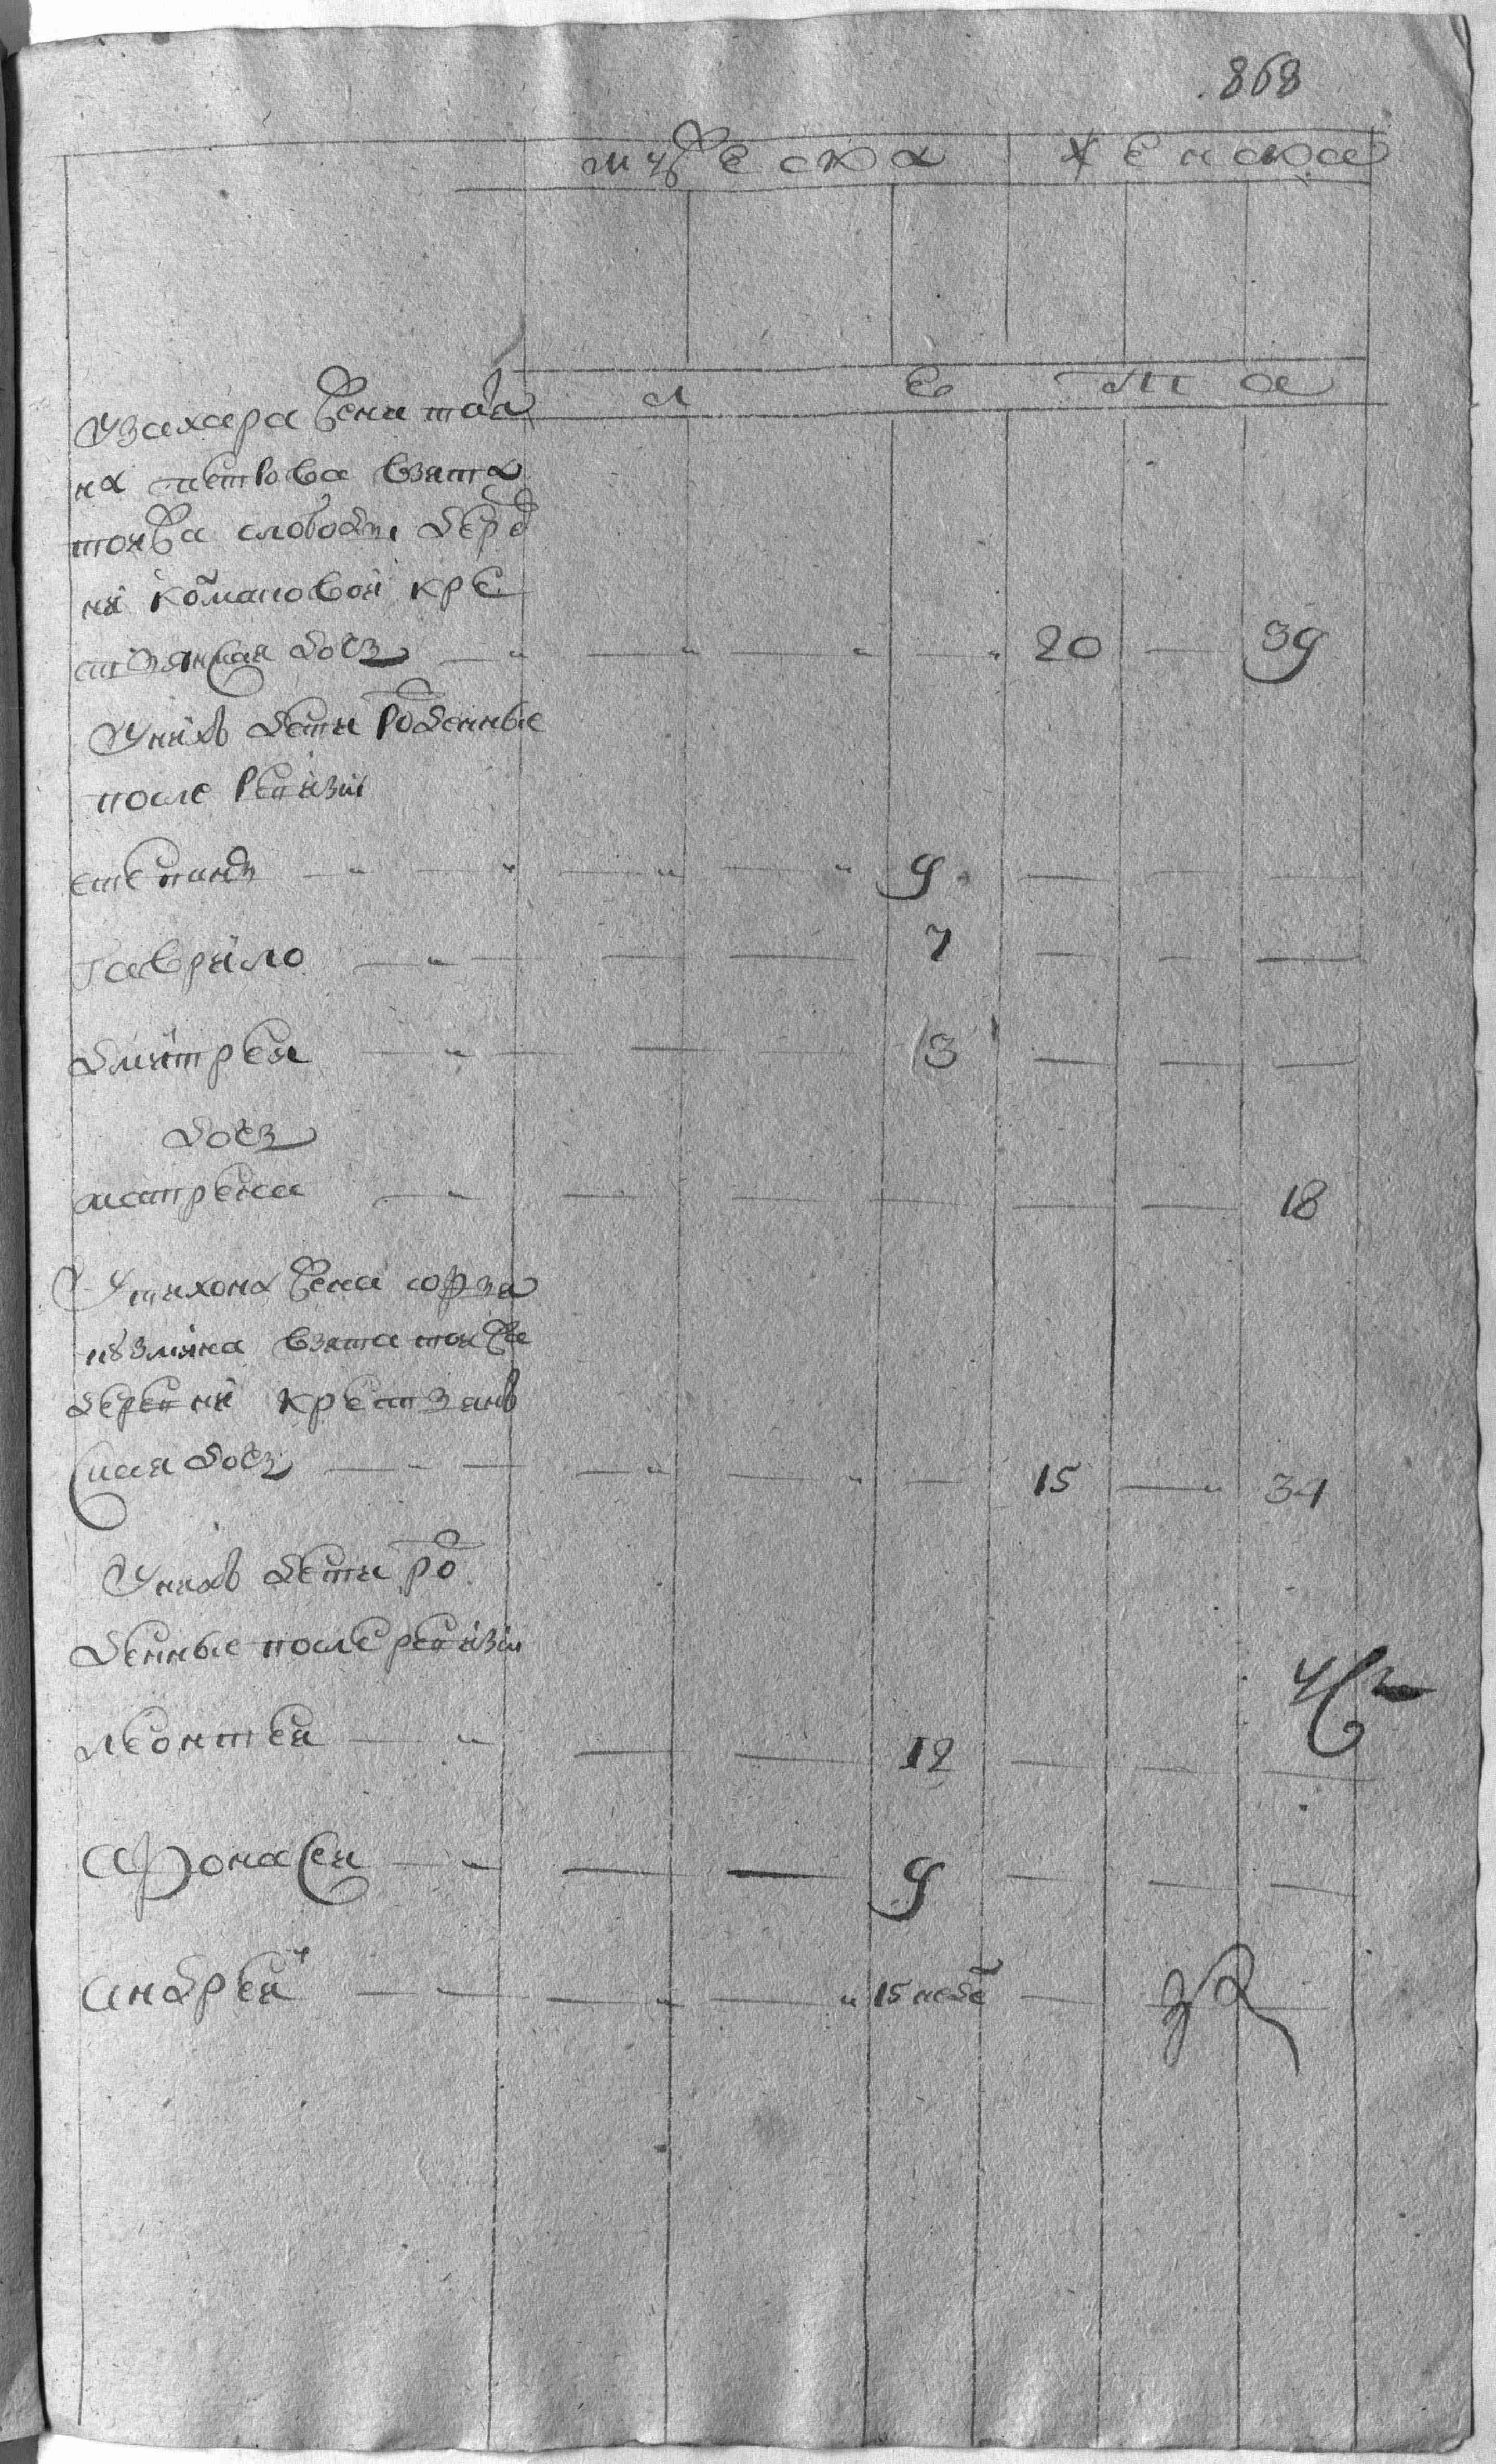 868
мужеска женска
лета
У захара жена татья
на петрова взята
тояжа слободы дерев
ни романовой кре
стьянская дочь 20 39
У них дети рожденные
после ревизии
степанъ 9
гаврило 7
дмитреи 3
дочь
матрена 18
У тихона жена
взята тояжа
деревни крестьянъ
ская дочь 15 34
У них дети ро
жденные после ревизии
леонтеи 12
афонасеи 9
андреи 15 неде